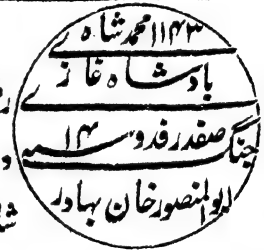 ۱۱۴۳ محمد شاہ
بادشاہ غازی
صفدر فدوی ۱۴
جنگ
ابوالمنصور خان بہادر